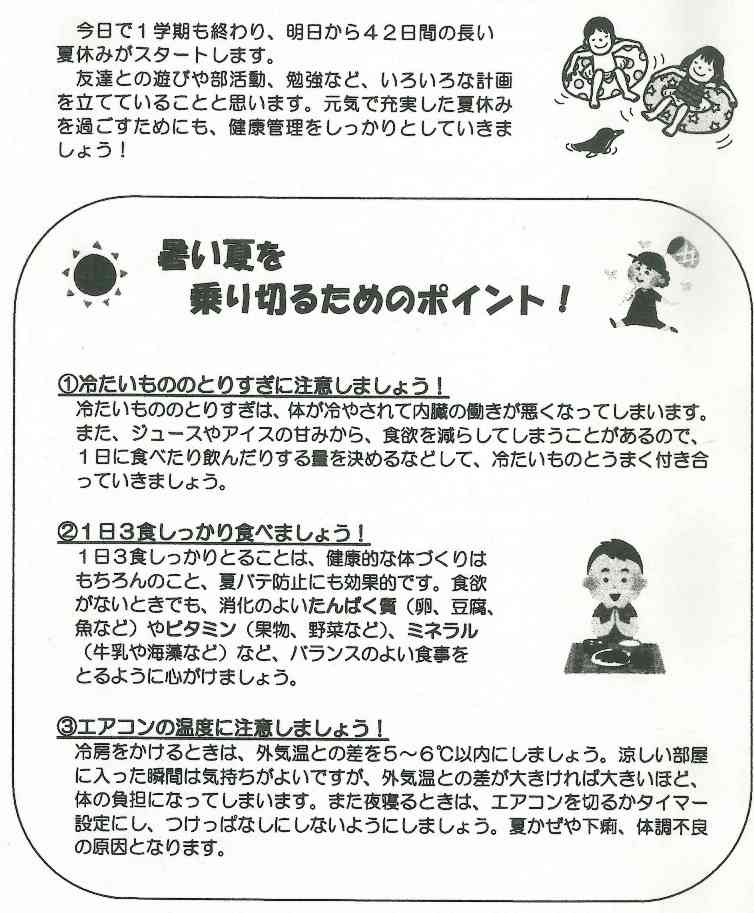 今日で１学期も終わり、明日から４２日間の長い
夏休みがスタートします。
友達との遊びや部活動、勉強など、いろいろな計画
を立てていることと思います。元気で充実した夏休み
を過ごすためにも、健康管理をしっかりとしていきま
しょう！
暑い夏を
乗り切るためのポイント！
①冷たいもののとりすぎに注意しましょう！
冷たいもののとりすぎは、体が冷やされて内臓の働きが悪くなってしまいます。
また、ジュースやアイスの甘みから、食欲を減らしてしまうことがあるので、
１日に食べたり飲んだりする量を決めるなどして、冷たいものとうまく付き合
っていきましょう。
②１日３食しっかり食べましょう！
１日３食しっかりとることは、健康的な体づくりは
もちろんのこと、夏バテ防止にも効果的です。食欲
がないときでも、消化のよいたんぱく質（卵、豆腐、
魚など）やビタミン（果物、野菜など）、ミネラル
（牛乳や海藻など）など、バランスのよい食事を
とるように心がけましょう。
③エアコンの温度に注意しましょう！
冷房をかけるときは、外気温との差を５～６℃以内にしましょう。涼しい部屋
に入った瞬間は気持ちがよいですが、外気温との差が大きければ大きいほど、
体の負担になってしまいます。また夜寝るときは、エアコンを切るかタイマー
設定にし、つけっぱなしにしないようにしましょう。夏かぜや下痢、体調不良
の原因となります。